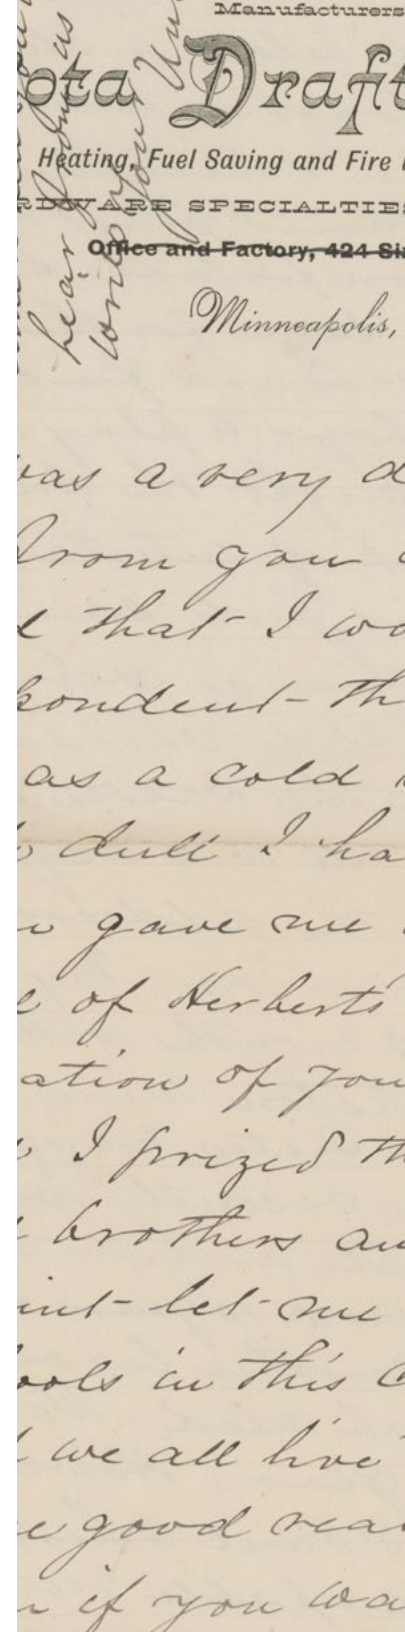 Manufacturers
ota Draft
Heating, Fuel Saving and Fire
RDWARE SPECIALTIES
Office and Factory, 424 Si
Minneapolis,
hear from
write your Un
as
was a very d
from you
that I wo
pondent - Th
as a cold
dull I ha
gave me
of Herberts
ation of your
I prized th
brothers an
int - let me
ools in this C
we all live
good rea
if you wa